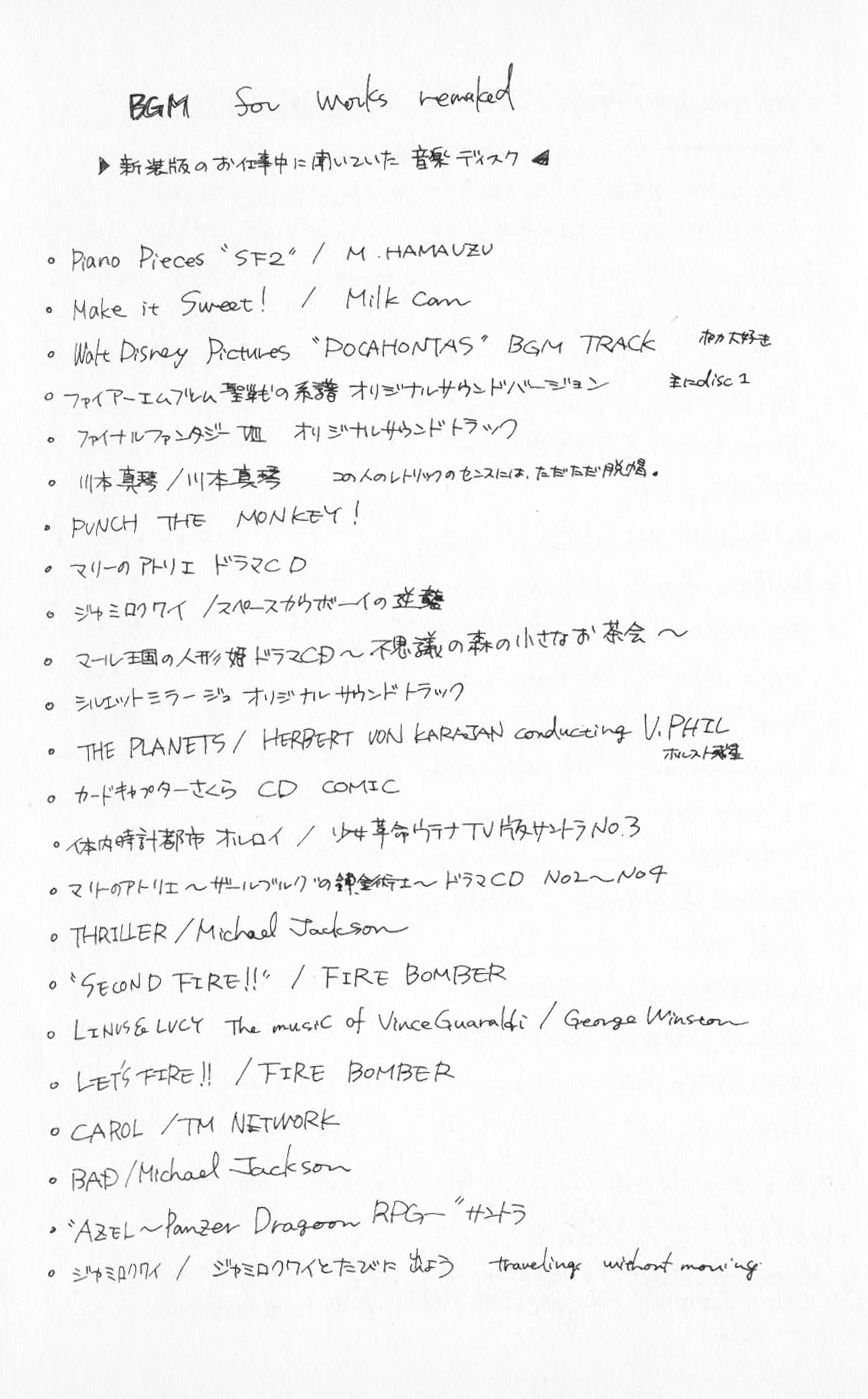 BGM for works remaked
▶ 新装版のお仕事中に聞いていた 音楽ディスク ◀
• Piano Pieces “SF2” / M.HAMAUZU
• Make it Sweet! / Milk Can
• Walt Disney Pictures “POCAHONTAS” BGM TRACK ポカ大好き
• ファイアーエムブレム 聖戦の系譜 オリジナルサウンドバージョン 主にdisc 1
• ファイナルファンタジー VIII オリジナルサウンドトラック
• 川本真琴 / 川本真琴 この人のレトリックのセンスには、ただただ脱帽。
• PUNCH THE MONKEY!
• マリーのアトリエ ドラマCD
• ジャミロクワイ / スペースカウボーイの逆襲
• マール王国の人形姫 ドラマCD 〜 不思議の森の小さなお茶会 〜
• シルエットミラージュ オリジナルサウンドトラック
• THE PLANETS / HERBERT VON KARAJAN conducting V.PHIL
ホルスト惑星
• カードキャプターさくら CD COMIC
• 体内時計都市 オルロイ / 少女革命ウテナTV版サントラNO.3
• マリーのアトリエ〜ザールブルグの錬金術士〜 ドラマCD NO2〜NO4
• THRILLER / Michael Jackson
• “SECOND FIRE!!” / FIRE BOMBER
• LINUS & LUCY The music of Vince Guaraldi / George Winston
• LET'S FIRE!! / FIRE BOMBER
• CAROL / TM NETWORK
• BAD / Michael Jackson
• “AZEL〜Panzer Dragoon RPG—” サントラ
• ジャミロクワイ / ジャミロクワイとたびに出よう travelings without moving.